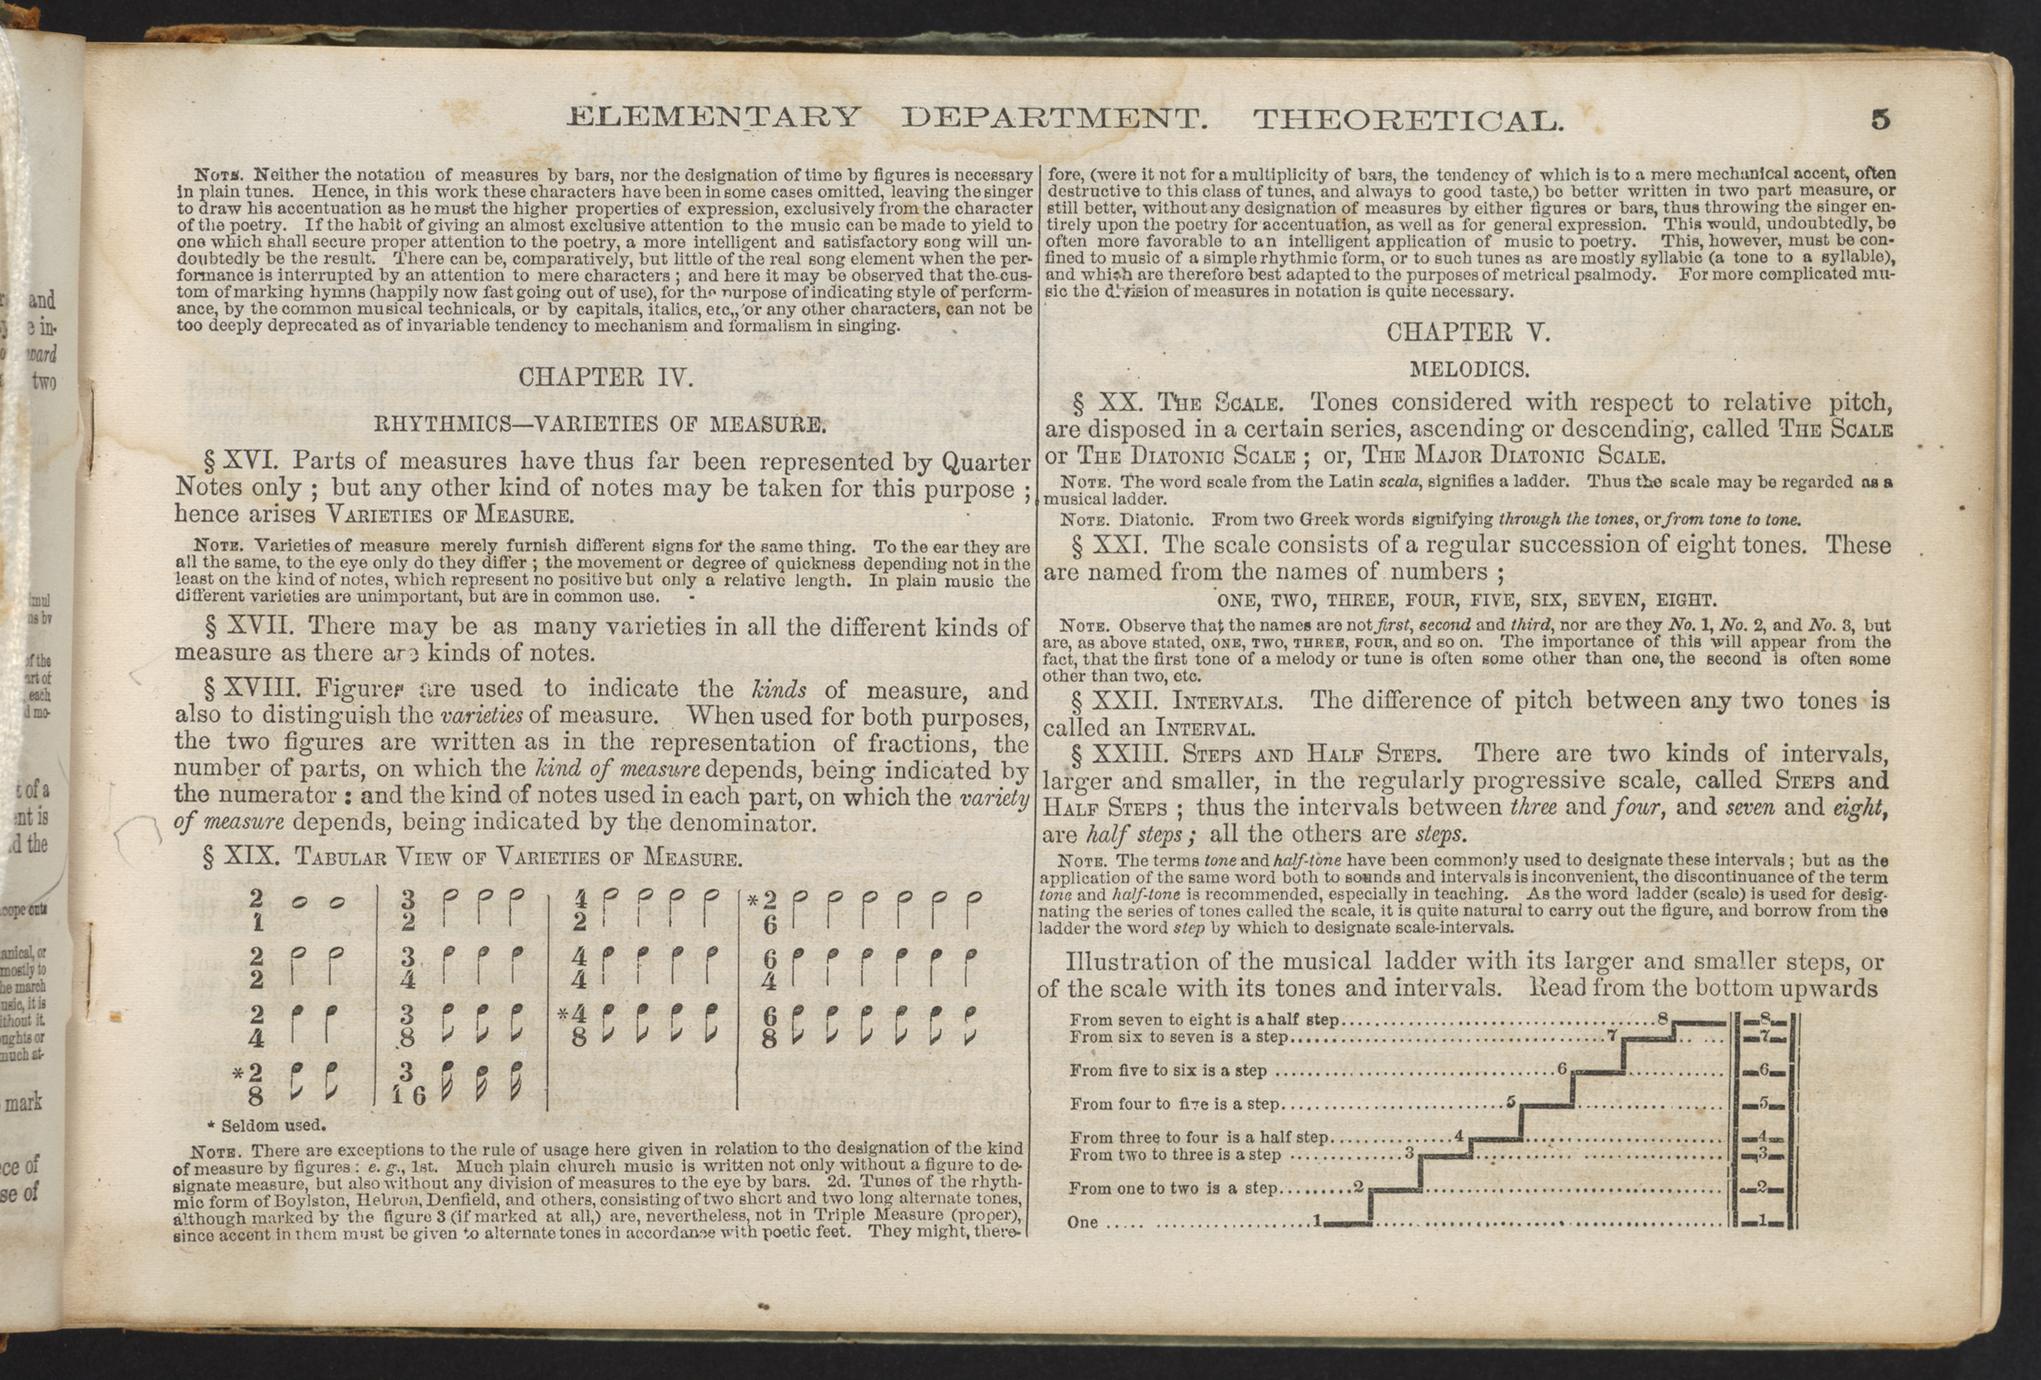 ELEMENTARY DEPARTMENT. THEORETICAL. 5
NOTE. Neither the notation of measures by bars, nor the designation of time by figures is necessary
in plain tunes. Hence, in this work these characters have been in some cases omitted, leaving the singer
to draw his accentuation as he must the higher properties of expression, exclusively from the character
of the poetry. If the habit of giving an almost exclusive attention to the music can be made to yield to
one which shall secure proper attention to the poetry, a more intelligent and satisfactory song will un-
doubtedly be the result. There can be, comparatively, but little of the real song element when the per-
formance is interrupted by an attention to mere characters ; and here it may be observed that the cus-
tom of marking hymns (happily now fast going out of use), for the purpose of indicating style of perform-
ance, by the common musical technicals, or by capitals, italics, etc., or any other characters, can not be
too deeply deprecated as of invariable tendency to mechanism and formalism in singing.
CHAPTER IV.
RHYTHMICS—VARIETIES OF MEASURE.
§ XVI. Parts of measures have thus far been represented by Quarter
Notes only ; but any other kind of notes may be taken for this purpose ;
hence arises VARIETIES OF MEASURE.
NOTE. Varieties of measure merely furnish different signs for the same thing. To the ear they are
all the same, to the eye only do they differ ; the movement or degree of quickness depending not in the
least on the kind of notes, which represent no positive but only a relative length. In plain music the
different varieties are unimportant, but are in common use.
§ XVII. There may be as many varieties in all the different kinds of
measure as there are kinds of notes.
§ XVIII. Figures are used to indicate the kinds of measure, and
also to distinguish the varieties of measure. When used for both purposes,
the two figures are written as in the representation of fractions, the
number of parts, on which the kind of measure depends, being indicated by
the numerator : and the kind of notes used in each part, on which the variety
of measure depends, being indicated by the denominator.
§ XIX. TABULAR VIEW OF VARIETIES OF MEASURE.
2 3 4 *2
1 2 2 6
2 3 4 6
2 4 4 4
2 3 *4 6
4 8 8 8
*2 3
8 16
* Seldom used.
NOTE. There are exceptions to the rule of usage here given in relation to the designation of the kind
of measure by figures : e. g., 1st. Much plain church music is written not only without a figure to de-
signate measure, but also without any division of measures to the eye by bars. 2d. Tunes of the rhyth-
mic form of Boylston, Hebron, Denfield, and others, consisting of two short and two long alternate tones,
although marked by the figure 3 (if marked at all,) are, nevertheless, not in Triple Measure (proper),
since accent in them must be given to alternate tones in accordance with poetic feet. They might, there-
fore, (were it not for a multiplicity of bars, the tendency of which is to a mere mechanical accent, often
destructive to this class of tunes, and always to good taste,) be better written in two part measure, or
still better, without any designation of measures by either figures or bars, thus throwing the singer en-
tirely upon the poetry for accentuation, as well as for general expression. This would, undoubtedly, be
often more favorable to an intelligent application of music to poetry. This, however, must be con-
fined to music of a simple rhythmic form, or to such tunes as are mostly syllabic (a tone to a syllable),
and which are therefore best adapted to the purposes of metrical psalmody. For more complicated mu-
sic the division of measures in notation is quite necessary.
CHAPTER V.
MELODICS.
§ XX. THE SCALE. Tones considered with respect to relative pitch,
are disposed in a certain series, ascending or descending, called THE SCALE
or THE DIATONIC SCALE ; or, THE MAJOR DIATONIC SCALE.
NOTE. The word scale from the Latin scala, signifies a ladder. Thus the scale may be regarded as a
musical ladder.
NOTE. Diatonic. From two Greek words signifying through the tones, or from tone to tone.
§ XXI. The scale consists of a regular succession of eight tones. These
are named from the names of numbers ;
ONE, TWO, THREE, FOUR, FIVE, SIX, SEVEN, EIGHT.
NOTE. Observe that the names are not first, second and third, nor are they No. 1, No. 2, and No. 3, but
are, as above stated, ONE, TWO, THREE, FOUR, and so on. The importance of this will appear from the
fact, that the first tone of a melody or tune is often some other than one, the second is often some
other than two, etc.
§ XXII. INTERVALS. The difference of pitch between any two tones is
called an INTERVAL.
§ XXIII. STEPS AND HALF STEPS. There are two kinds of intervals,
larger and smaller, in the regularly progressive scale, called STEPS and
HALF STEPS ; thus the intervals between three and four, and seven and eight,
are half steps ; all the others are steps.
NOTE. The terms tone and half-tone have been commonly used to designate these intervals ; but as the
application of the same word both to sounds and intervals is inconvenient, the discontinuance of the term
tone and half-tone is recommended, especially in teaching. As the word ladder (scale) is used for desig-
nating the series of tones called the scale, it is quite natural to carry out the figure, and borrow from the
ladder the word step by which to designate scale-intervals.
Illustration of the musical ladder with its larger and smaller steps, or
of the scale with its tones and intervals. Read from the bottom upwards
From seven to eight is a half step 8 8
From six to seven is a step 7 7
From five to six is a step 6 6
From four to five is a step 5 5
From three to four is a half step 4 4
From two to three is a step 3 3
From one to two is a step 2 2
One 1 1